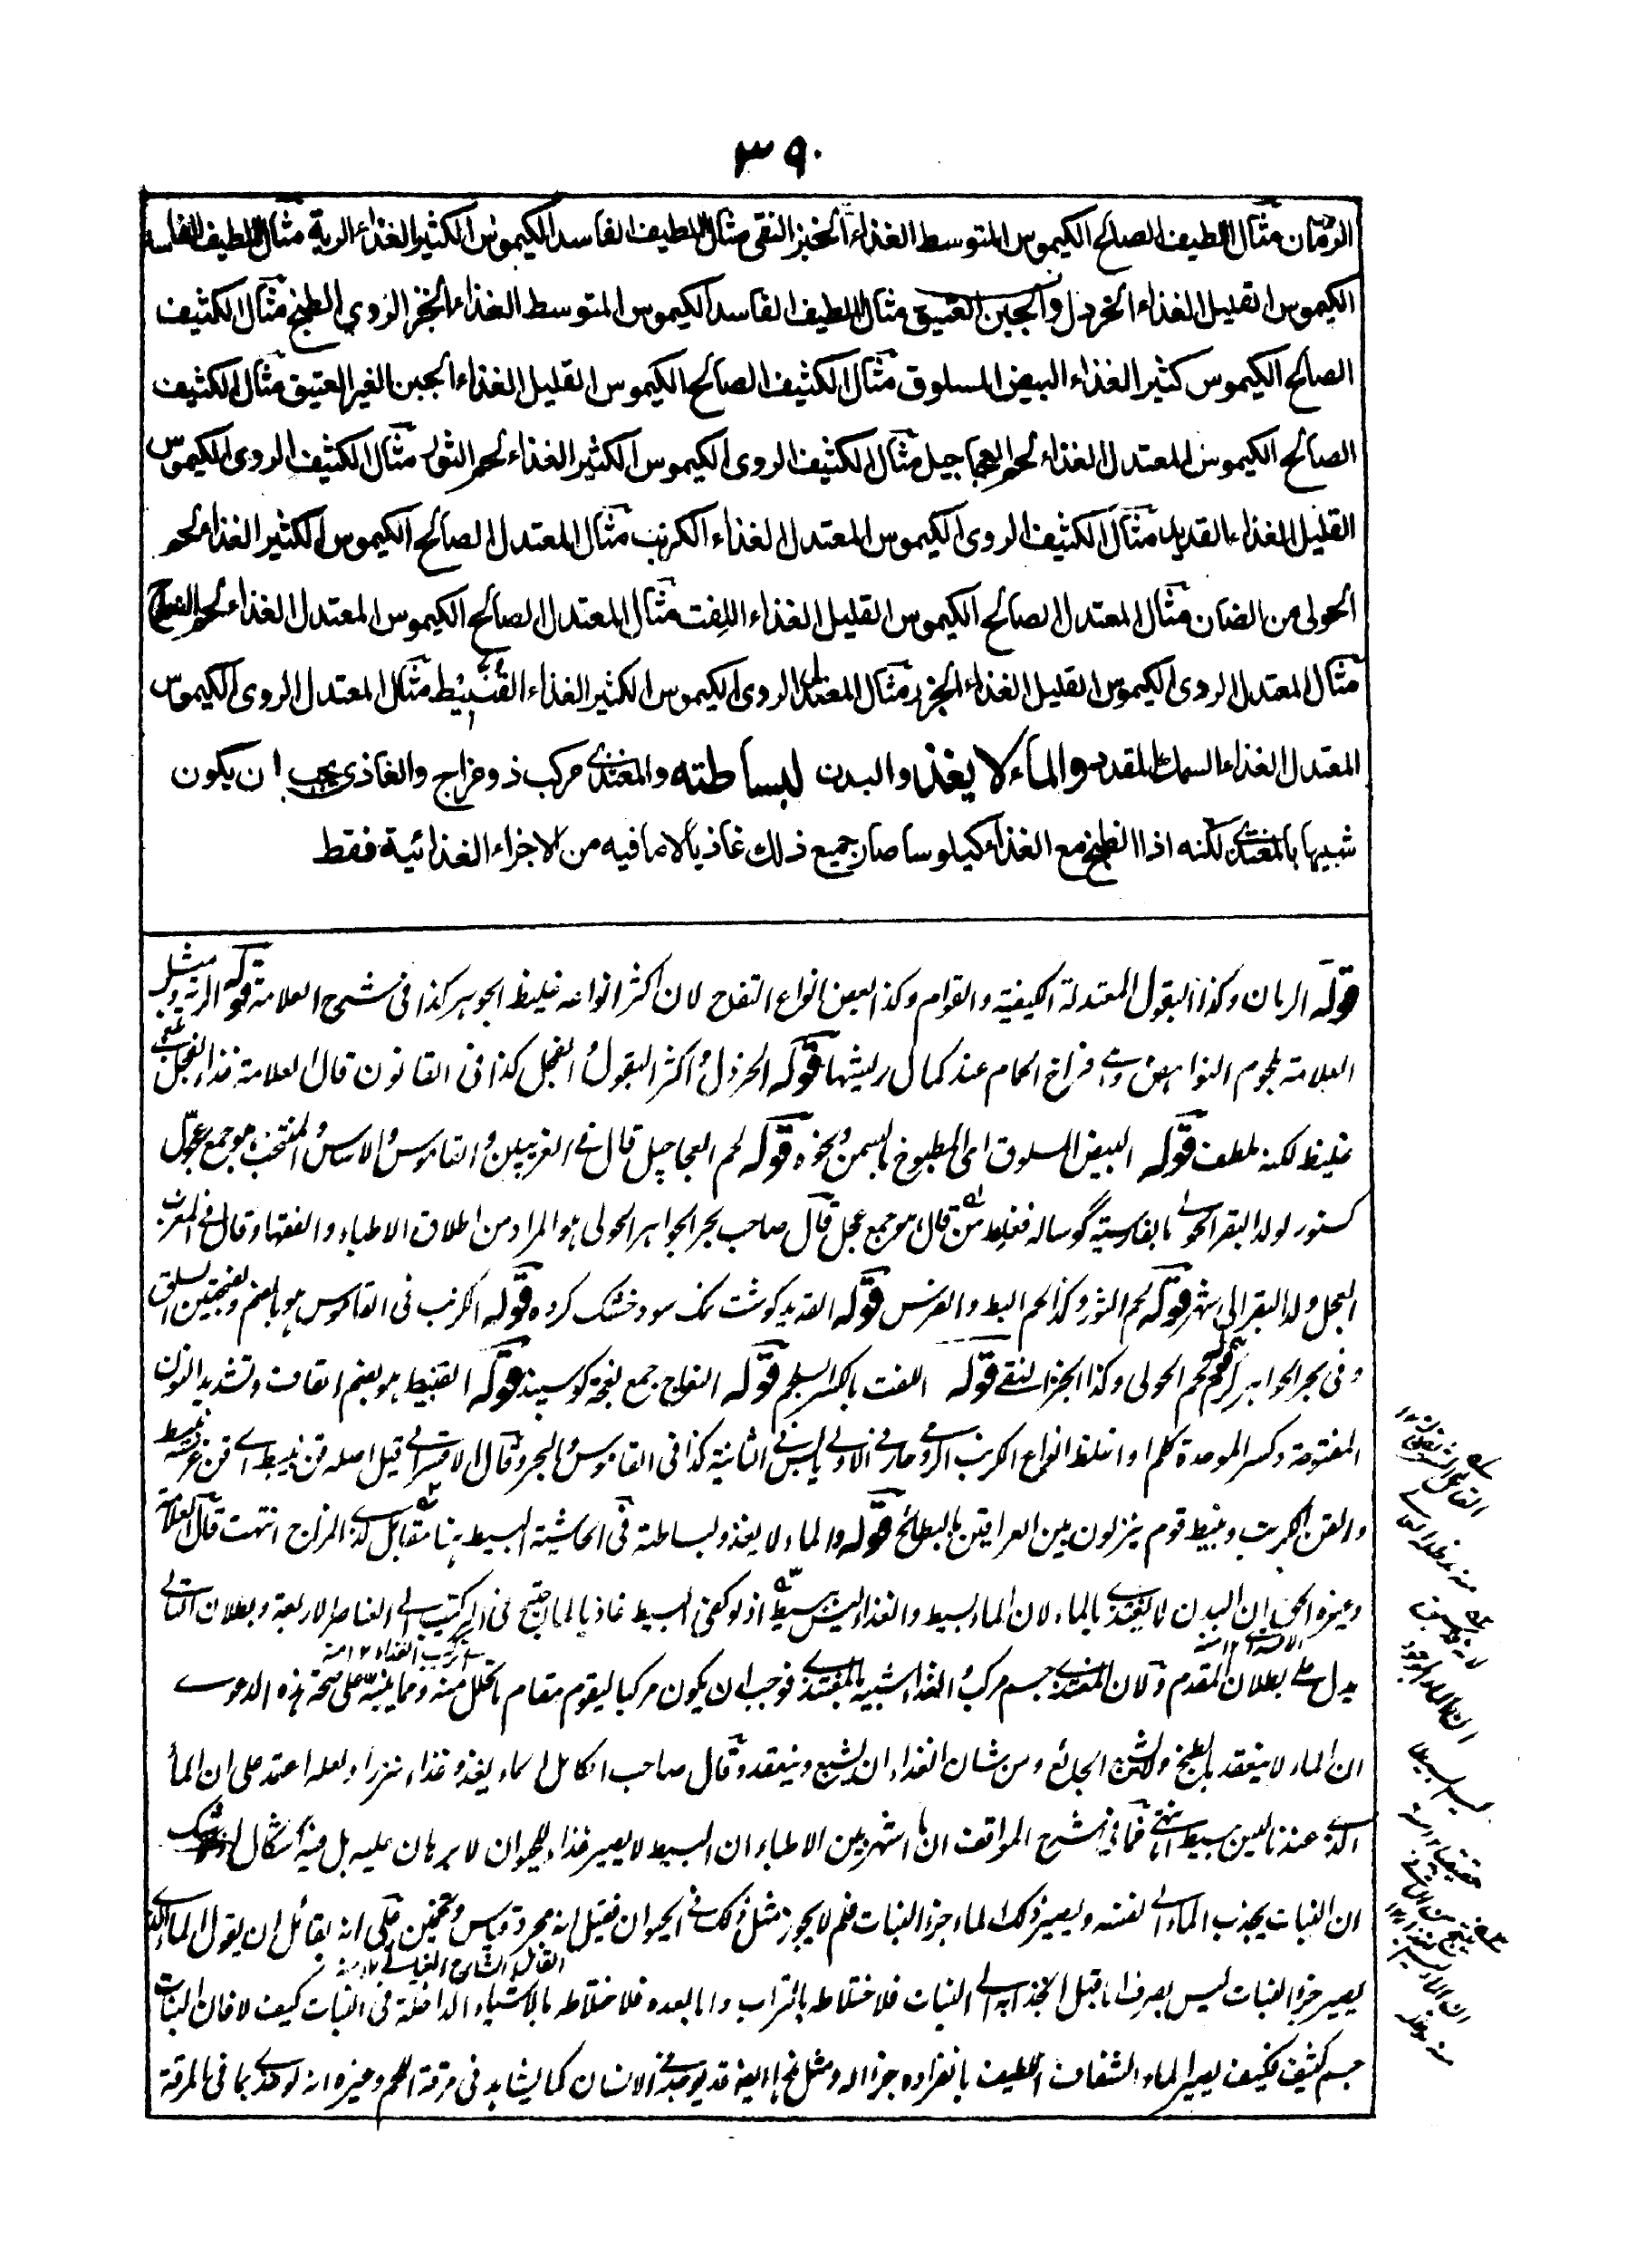 ٣٩٠
الرمان مثال اللطيف الصالح الكيموس المتوسط الغذاء الخبز النقى مثال اللطيف الفاسد الكيموس الكثير الغذاء الرية مثال اللطيف الفاسد
الكيموس القليل الغذاء الخردل والجبن العتيق مثال اللطيف الفاسد الكيموس المتوسط الغذاء الخبز الردي الطبخ مثال الكثيف
الصالح الكيموس كثير الغذاء البيض المسلوق مثال الكثيف الصالح الكيموس القليل الغذاء الجبن الغير العتيق مثال الكثيف
الصالح الكيموس المعتدل الغذاء لحم العجاجيل مثال الكثيف الردى الكيموس الكثير الغذاء لحم الثور مثال الكثيف الردى الكيموس
القليل الغذاء القديد مثال الكثيف الردى الكيموس المعتدل الغذاء الكرنب مثال المعتدل الصالح الكيموس الكثير الغذاء لحم
الحولى من الضان مثال المعتدل الصالح الكيموس القليل الغذاء اللفت مثال المعتدل الصالح الكيموس المعتدل الغذاء لحم النعاج
مثال المعتدل الردى الكيموس القليل الغذاء الجزر مثال المعتدل الردى الكيموس الكثير الغذاء القنبيط مثال المعتدل الردى الكيموس
المعتدل الغذاء السمك المقدد والماء لا يغذو البدن لبساطته والمغتذى مركب ذو مزاج والغاذى يجب ان يكون
شبيها بالمغتذى لكنه اذا انطبخ مع الغذاء كيلوسا صار جميع ذلك غاذيا لا ما فيه من الاجزاء الغذائية فقط
قوله الرمان وكذا البقول المعتدلة الكيفية والقوام وكذا بعض انواع التفاح لان اكثر انواعه غليظ الجوهر كذا فى شرح العلامة قوله الرية ومثل
العلامة بلحوم النواهض وهى فراخ الحمام عند كمال ريشها قوله الخردل واكثر البقول والفجل كذا فى القانون قال العلامة غذاء الفجل
غليظ لكنه ملطف قوله البيض المسلوق اى المطبوخ بالسمن ونحوه قوله لحم العجاجيل قال فى الغريبين والقاموس والاساس والمنتخب هو جمع عجول
كسنور لولد البقر بالفارسية گوساله فغلط من قال هو جمع عجل قال صاحب بحر الجواهر الحولى هو المراد من اطلاق الاطباء والفقهاء وقال فى المغرب
العجل ولد البقر الى شهر قوله لحم الثور وكذا لحم البط والفرس قوله القديد گوشت نمک سود خشک کرده قوله الكرنب فى القاموس هو بالضم وبضمتين السلق
وفى بحر الجواهر قوله لحم الحولى وكذا الخبز النقى قوله اللفت بالكسر السلجم قوله النعاج جمع نعجة گوسپند قوله القنبيط هو بضم القاف وتشديد النون
المفتوحة وكسر الموحدة واغلظ انواع الكرنب وحار فى الاولى يابس فى الثانية كذا فى القاموس والبحر وقال قيل اصله قن نبيط
ونبيط قوم ينزلون بين العراقين بالبطائح قوله والماء لا يغذو لبساطته فى الحاشية البسيط هنا مقابل لذى المزاج انتهت قال العلامة
وغيره الحق ان البدن لا يغتذى بالماء لان الماء بسيط والغذاء ليس ببسيط اذ لو كفى البسيط غاذيا لما احتيج فى التركيب الى العناصر الاربعة وبطلان التالى
يدل على بطلان المقدم ولان المغتذى جسم مركب والغذاء شبيه بالمغتذى فوجب ان يكون مركبا ليقوم مقام ما تحلل منه ومما ينبه على صحة هذه الدعوى
ان الماء لا ينعقد بالطبخ ولا يشبع الجائع ومن شان الغذاء ان يشبع وينعقد وقال صاحب الكامل الماء يغذو غذاء نزرا ولعله اعتمد على ان الماء
الذى عندنا ليس ببسيط انتهى فما فى شرح المواقف ان ما اشتهر بين الاطباء ان البسيط لا يصير غذاء للحيوان لا برهان عليه بل فيه اشكال
ان النبات يجذب الماء الى نفسه ويصير ذلك الماء جزء النبات فلم لا يجوز مثل ذلك فى الحيوان فقيل انه مجرد قياس وتخمين على انه لقائل ان يقول الماء الذى
يصير جزء النبات ليس بصرف اما قبل انجذابه الى النبات فلاختلاطه بالتراب واما بعده فلاختلاطه بالاشياء الداخلة فى النبات كيف لا فان النبات
جسم كثيف فكيف يصير الماء الشفاف اللطيف بانفراده جزءا له ومثل هذا ايضا قد يوجد فى الانسان كما يشاهد فى مرقة اللحم وغيره انه لو غذى بما فى المرقة